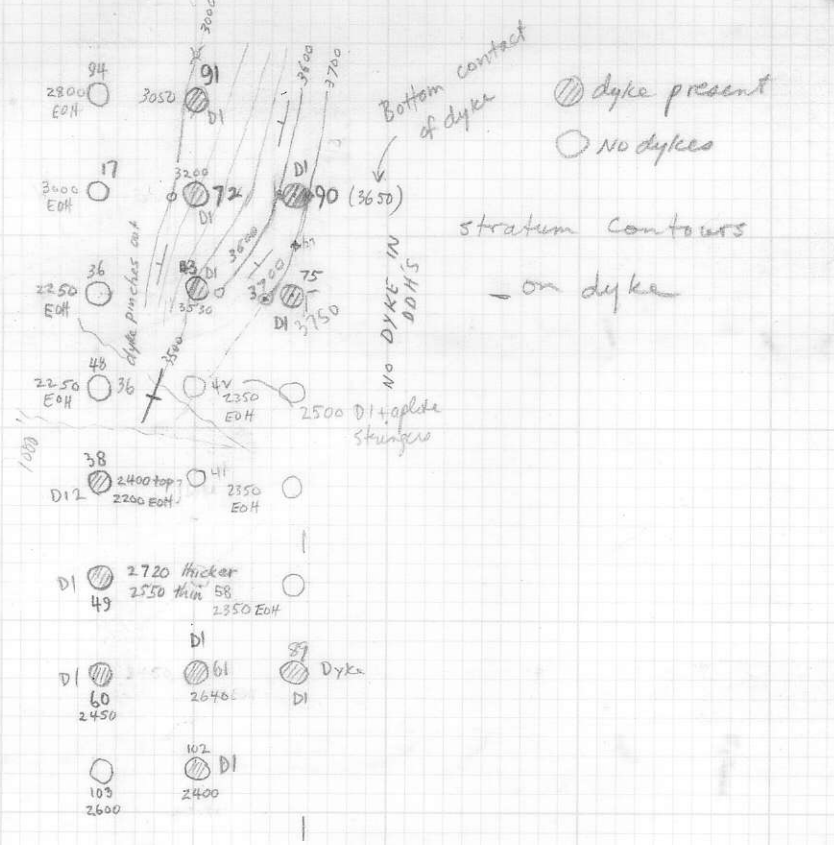 3000
3600
3700
Bottom contact
of dyke
dyke present
No dykes
94
2800
EOH
91
3050
D1
17
3000
EOH
3200
72
D1
D1
90 (3650)
stratum contours
- on dyke
36
2250
EOH
dyke pinches out
D1
3530
3600
3700
75
D1 3750
NO DYKE IN
DDH'S
3500
48
2250
EOH
36
42
2350
EOH
2500 D1 + aplite
stringers
1000'
38
D12
2400 top
2200 EOH
41
2350
EOH
D1
49
2720 thicker
2550 thin
58
2350 EOH
D1
60
2450
D1
61
2640
89
Dyke
D1
103
2600
102
D1
2400